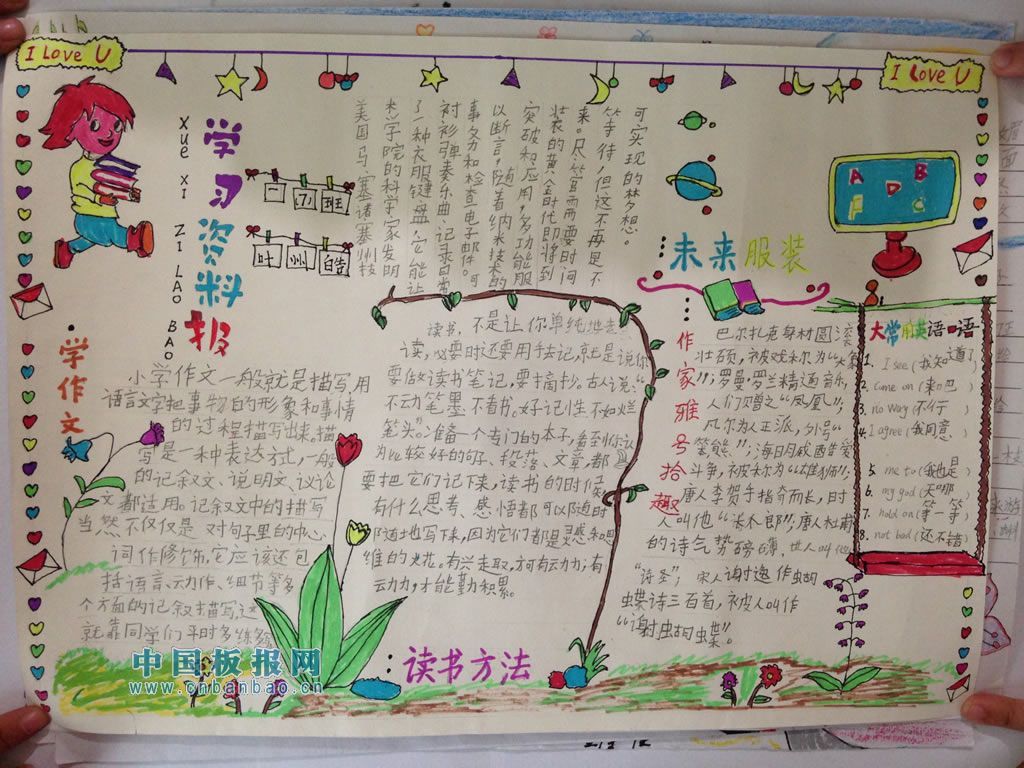 I Love U
I Love U
Xue XI ZI LAO BAO
学习资料报
一(7)班
叶州皓
可实现的梦想。
等待,但这不再是不
来。尽管需要时间
装的黄金时代即将到
突破和应用,多功能服
以断言,随着纳米技术的
事务和检查电子邮件。可
衬衫弹奏乐曲、记录日常
了一种衣服键盘,它能让
类学院的科学家发明
美国马塞诸塞州技
未来服装
A B
D
F C
学作文
小学作文一般就是描写,用
语言文字把事物的形象和事情
的过程描写出来。描
写是一种表达方式,一般
的记余文、说明文、议论
文都适用。记叙文中的描写
当然不仅仅是对句子里的中心
词作修饰,它应该还包
括语言、动作、细节等多
个方面的记叙描写,这
就靠同学们平时多练练
读书,不是让你单纯地去
读,必要时还要用手去记,就是说你
要做读书笔记,要摘抄。古人说:“
不动笔墨不看书。好记性不如烂
笔头”。准备一个专门的本子,看到你认
为比较好的句子、段落、文章,都
要把它们记下来,读书的时候
有什么思考、感悟都可以随时
随地写下来,因为它们都是灵感和思
维的火花。有兴走取,才有动力;有
动力,才能勤积累。
读书方法
作家雅号拾趣
巴尔扎克身材圆滚
壮硕,被戏称为“大象
”;罗曼·罗兰精通音乐,
人们赠之“凤凰”;
凡尔为人正派,外号“
笨熊”;海明威酷爱
斗争,被称为“雄狮”;
唐人李贺手指奇而长,时
人叫他“长爪郎”;唐人杜甫
的诗气势磅礴,世人叫他
“诗圣”;宋人谢逸作蝴
蝶诗三百首,被人叫作
“谢蝴蝶”。
大常用英语口语
1. I see (我知道了)
2. come on (来吧)
3. no way (不行)
4. I agree (我同意)
5. me to (我也是)
6. my god (天哪)
7. hold on (等一等)
8. not bad (还不错)
中国板报网
www.cnbanbao.cn